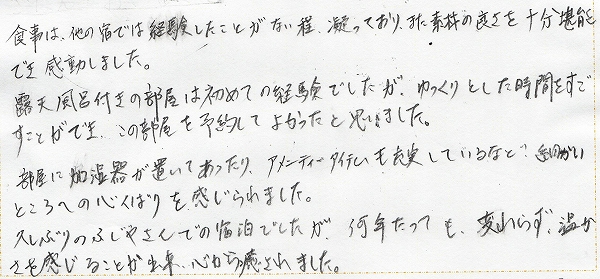 食事は、他の宿では経験したことがない程、凝っており、また素材の良さを十分堪能
でき感動しました。
露天風呂付きの部屋は初めての経験でしたが、ゆっくりとした時間をすご
すことができ、この部屋を予約してよかったと思いました。
部屋に加湿器が置いてあったり、アメニティーアイテムも充実しているなど、細かい
ところへの心くばりを感じられました。
久しぶりのふじやさんでの宿泊でしたが、何年たっても、変わらず、温か
さを感じることが出来、心から癒されました。